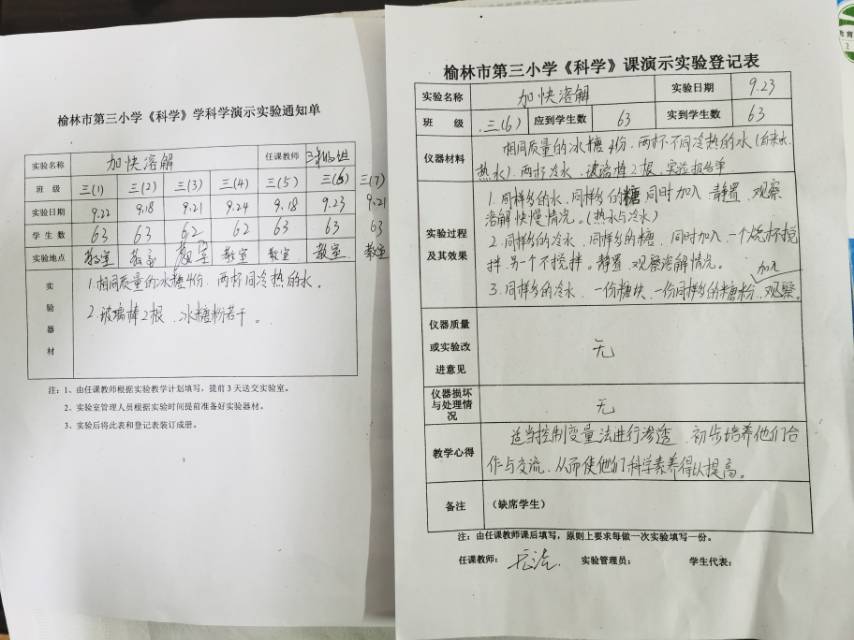 榆林市第三小学《科学》学科学演示实验通知单
实验名称 加快溶解 任课教师
班 级 三(1) 三(2) 三(3) 三(4) 三(5) 三(6) 三(7)
实验日期 9.22 9.18 9.21 9.24 9.18 9.23 9.21
学 生 数 63 63 62 62 63 63 63
实验地点 教室 教室 教室 教室 教室 教室 教室
实验器材
1.相同质量的冰糖4份、两杯同冷热的水。
2.玻璃棒2根、冰糖粉若干。
注：1、由任课教师根据实验教学计划填写，提前3天送交实验室。
2、实验室管理人员根据实验时间提前准备好实验器材。
3、实验后将此表和登记表装订成册。
榆林市第三小学《科学》课演示实验登记表
实验名称 加快溶解 实验日期 9.23
班 级 三(6) 应到学生数 63 实到学生数 63
仪器材料
相同质量的冰糖4份、两杯不同冷热的水(自来水、
热水).两杯冷水、玻璃棒2根、实验报告单
实验过程
及其效果
1.同样多的水、同样多的糖同时加入、静置、观察
溶解快慢情况。(热水与冷水)
2.同样多的冷水、同样多的糖、同时加入、一个烧杯搅
拌.另一个不搅拌。静置、观察溶解情况。
加入
3.同样多的冷水、一份糖块、一份同样多的糖粉、观察。
仪器质量
或实验改
进意见
无
仪器损坏
与处理情
况
无
教学心得
适当控制变量法进行渗透、初步培养他们合
作与交流、从而使他们科学素养得以提高。
备注 （缺席学生）
注：由任课教师课后填写，原则上要求每做一次实验填写一份。
任课教师： 实验管理员： 学生代表：